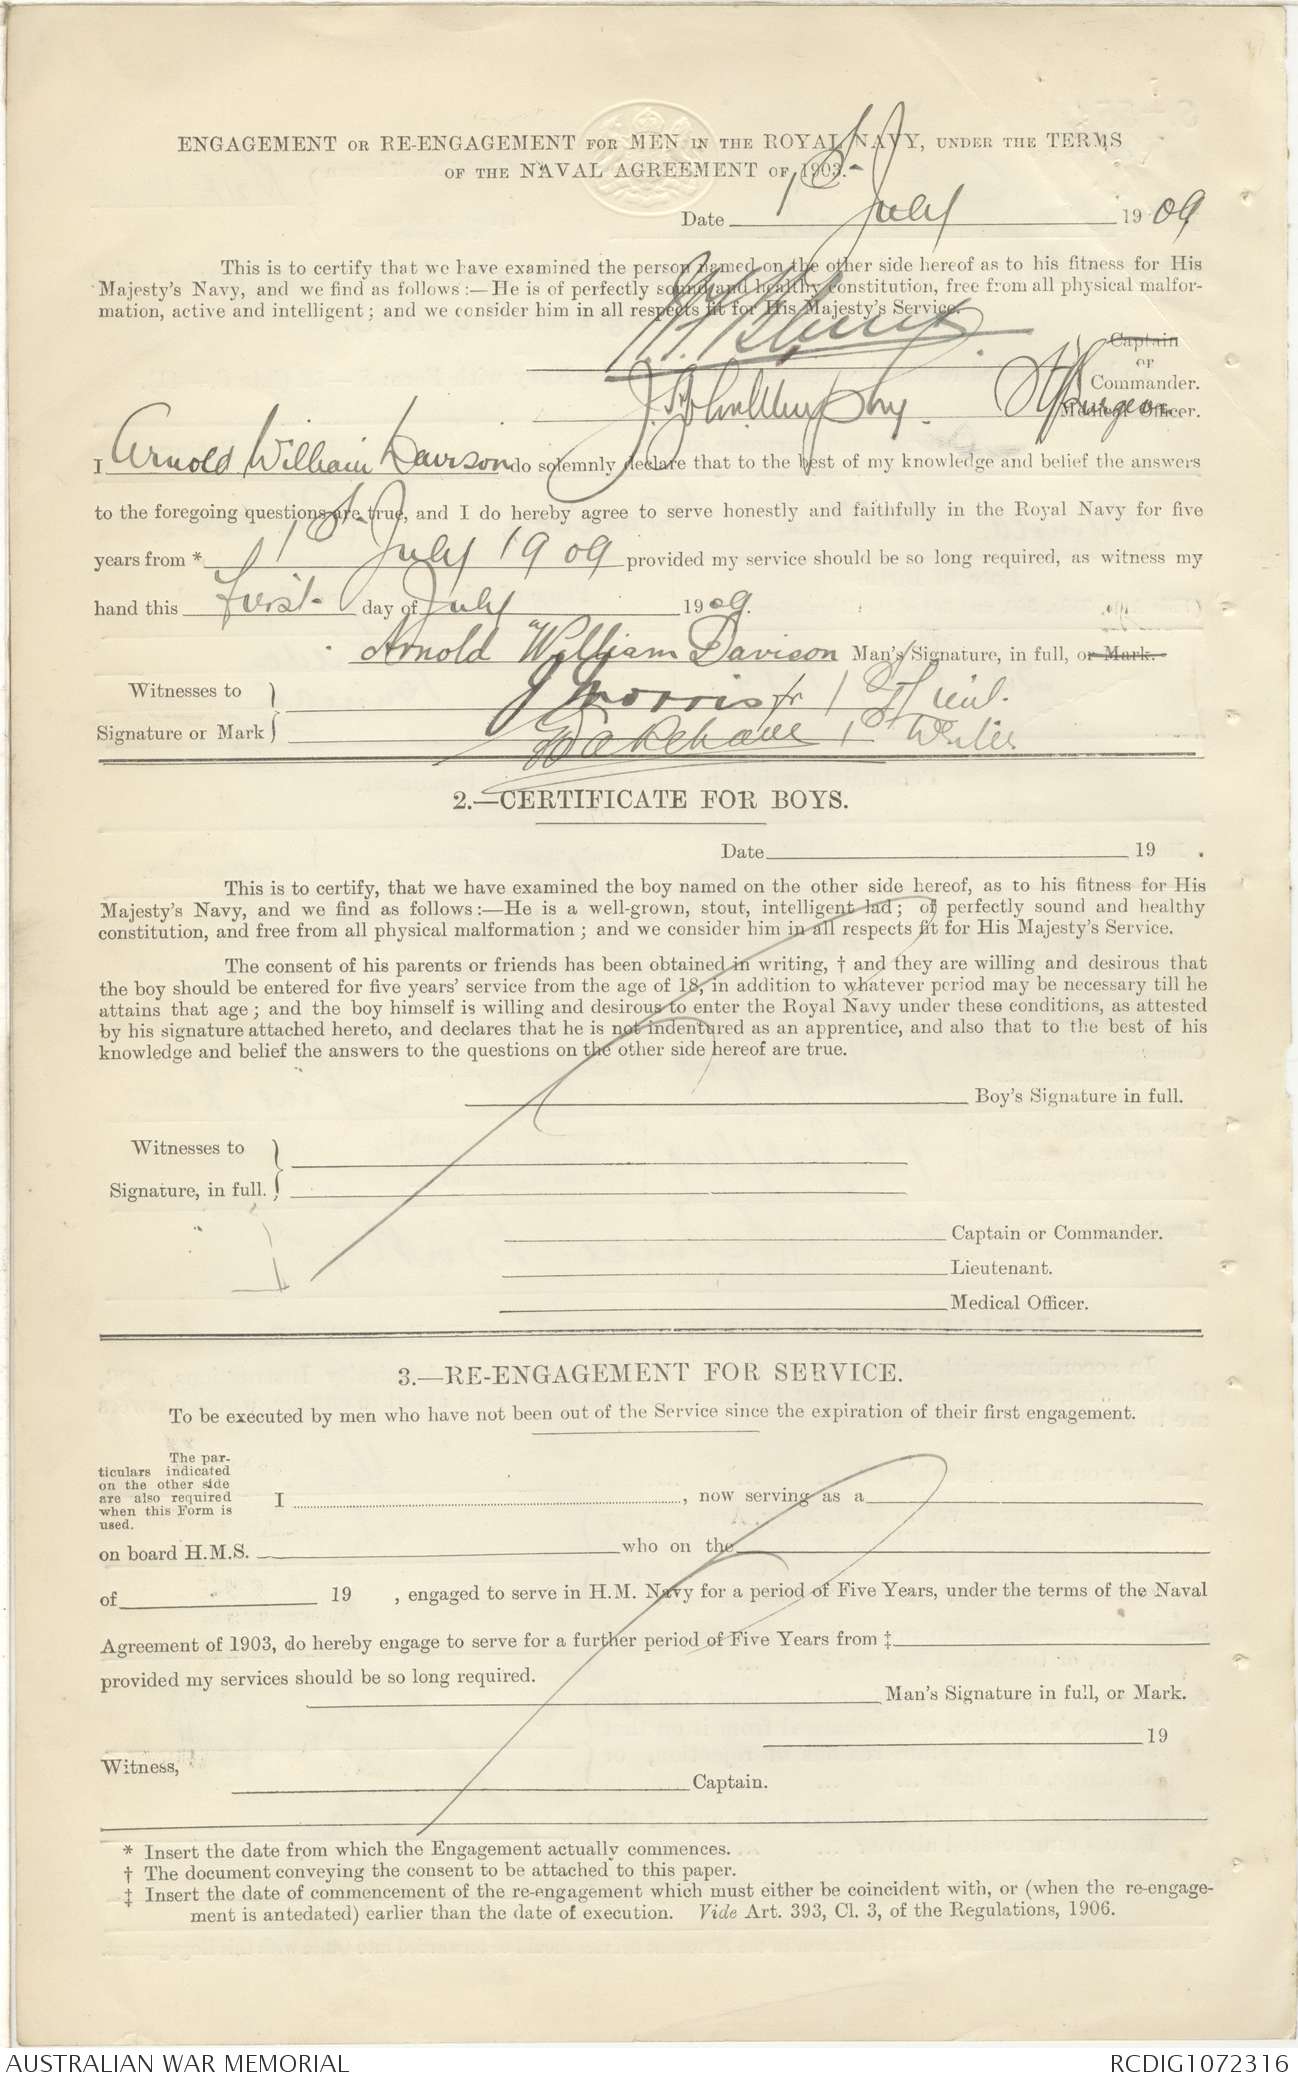 ENGAGEMENT OR RE-ENGAGEMENT FOR MEN IN THE ROYAL NAVY, UNDER THE TERMS
OF THE NAVAL AGREEMENT OF 1903.
Date 1st July 1909
This is to certify that we have examined the person named on the other side hereof as to his fitness for His
Majesty's Navy, and we find as follows:—He is of perfectly sound and healthy constitution, free from all physical malfor-
mation, active and intelligent; and we consider him in all respects fit for His Majesty's Service.
Captain
or
Commander.
Surgeon
Medical Officer.
I Arnold William Davison do solemnly declare that to the best of my knowledge and belief the answers
to the foregoing questions are true, and I do hereby agree to serve honestly and faithfully in the Royal Navy for five
years from * 1st July 1909 provided my service should be so long required, as witness my
hand this First day of July 1909.
Arnold William Davison Man's Signature, in full, or Mark.
Witnesses to
Signature or Mark
J Morris
1st Writer
2.—CERTIFICATE FOR BOYS.
Date 19 .
This is to certify, that we have examined the boy named on the other side hereof, as to his fitness for His
Majesty's Navy, and we find as follows:—He is a well-grown, stout, intelligent lad; of perfectly sound and healthy
constitution, and free from all physical malformation; and we consider him in all respects fit for His Majesty's Service.
The consent of his parents or friends has been obtained in writing, † and they are willing and desirous that
the boy should be entered for five years' service from the age of 18, in addition to whatever period may be necessary till he
attains that age; and the boy himself is willing and desirous to enter the Royal Navy under these conditions, as attested
by his signature attached hereto, and declares that he is not indentured as an apprentice, and also that to the best of his
knowledge and belief the answers to the questions on the other side hereof are true.
Boy's Signature in full.
Witnesses to
Signature, in full.
Captain or Commander.
Lieutenant.
Medical Officer.
3.—RE-ENGAGEMENT FOR SERVICE.
To be executed by men who have not been out of the Service since the expiration of their first engagement.
The par-
ticulars indicated
on the other side
are also required
when this Form is
used.
I , now serving as a
on board H.M.S. who on the
of 19 , engaged to serve in H.M. Navy for a period of Five Years, under the terms of the Naval
Agreement of 1903, do hereby engage to serve for a further period of Five Years from ‡
provided my services should be so long required.
Man's Signature in full, or Mark.
19
Witness,
Captain.
* Insert the date from which the Engagement actually commences.
† The document conveying the consent to be attached to this paper.
‡ Insert the date of commencement of the re-engagement which must either be coincident with, or (when the re-engage-
ment is antedated) earlier than the date of execution. Vide Art. 393, Cl. 3, of the Regulations, 1906.
AUSTRALIAN WAR MEMORIAL
RCDIG1072316